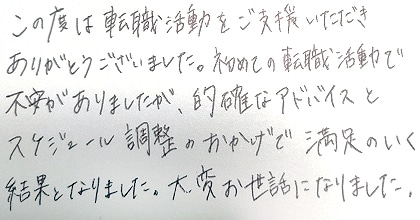 この度は転職活動をご支援いただき
ありがとうございました。初めての転職活動で
不安がありましたが、的確なアドバイスと
スケジュール調整のおかげで満足のいく
結果となりました。大変お世話になりました。